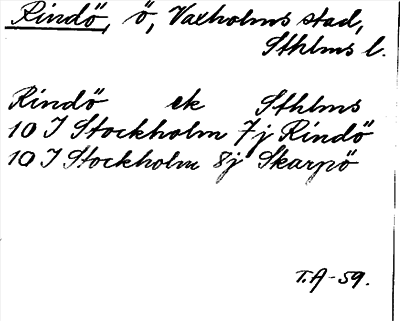 Rindö, ö, Vaxholms stad,
Sthlms l.
Rindö ek Sthlms
10 I Stockholm 7j Rindö
10 I Stockholm 8j Skarpö
T.A-59.